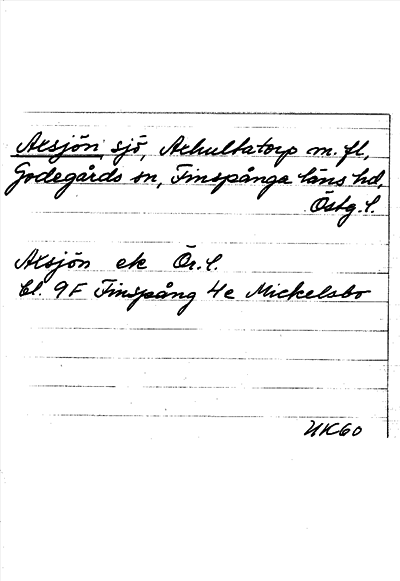 Axsjön, sjö, Axhultatorp m. fl.,
Godegårds sn, Finspånga läns hd,
Östg. l.
Axsjön ek Ör. l.
bl. 9F Finspång 4e Mickelsbo
UK60